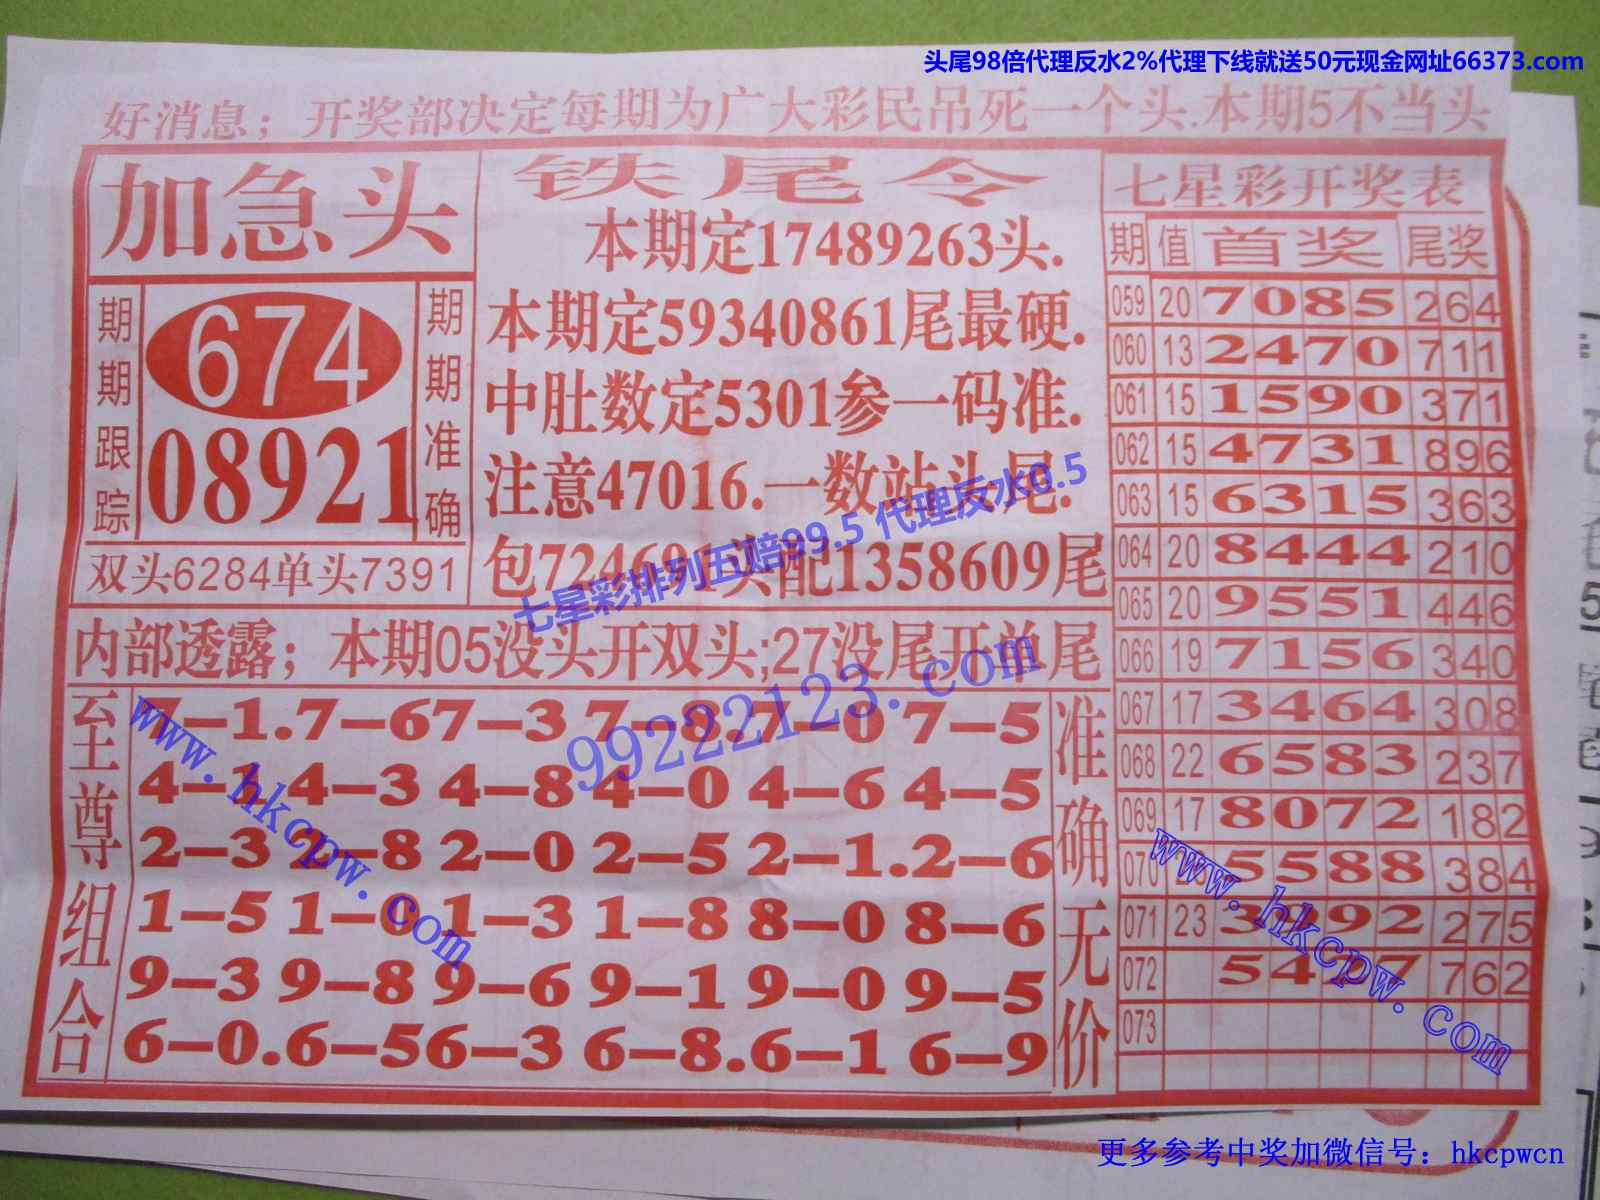 头尾98倍代理反水2%代理下线就送50元现金网址66373.com
好消息；开奖部决定每期为广大彩民吊死一个头.本期5不当头
加急头
期期跟踪
674
08921
期期准确
双头6284单头7391
铁尾令
本期定17489263头.
本期定59340861尾最硬.
中肚数定5301参一码准.
注意47016.一数站头尾.
包724691头配1358609尾
七星彩排列五赔99.5 代理反水0.5
99222123.com
内部透露；本期05没头开双头;27没尾开单尾
至尊组合
7–1.7–67–3 7–8.7–0 7–5
4–1.4–3 4–8 4–0 4–6 4–5
2–3 2–8 2–0 2–5 2–1.2–6
1–5 1–0 1–3 1–8 8–0 8–6
9–3 9–8 9–6 9–1 9–0 9–5
6–0.6–56–3 6–8.6–1 6–9
准确无价
www.hkcpw.com
七星彩开奖表
期 值 首奖 尾奖
059 20 7085 264
060 13 2470 711
061 15 1590 371
062 15 4731 896
063 15 6315 363
064 20 8444 210
065 20 9551 446
066 19 7156 340
067 17 3464 308
068 22 6583 237
069 17 8072 182
070 5588 384
071 23 3992 275
072 5497 762
073
www.hkcpw.com
更多参考中奖加微信号：hkcpwcn